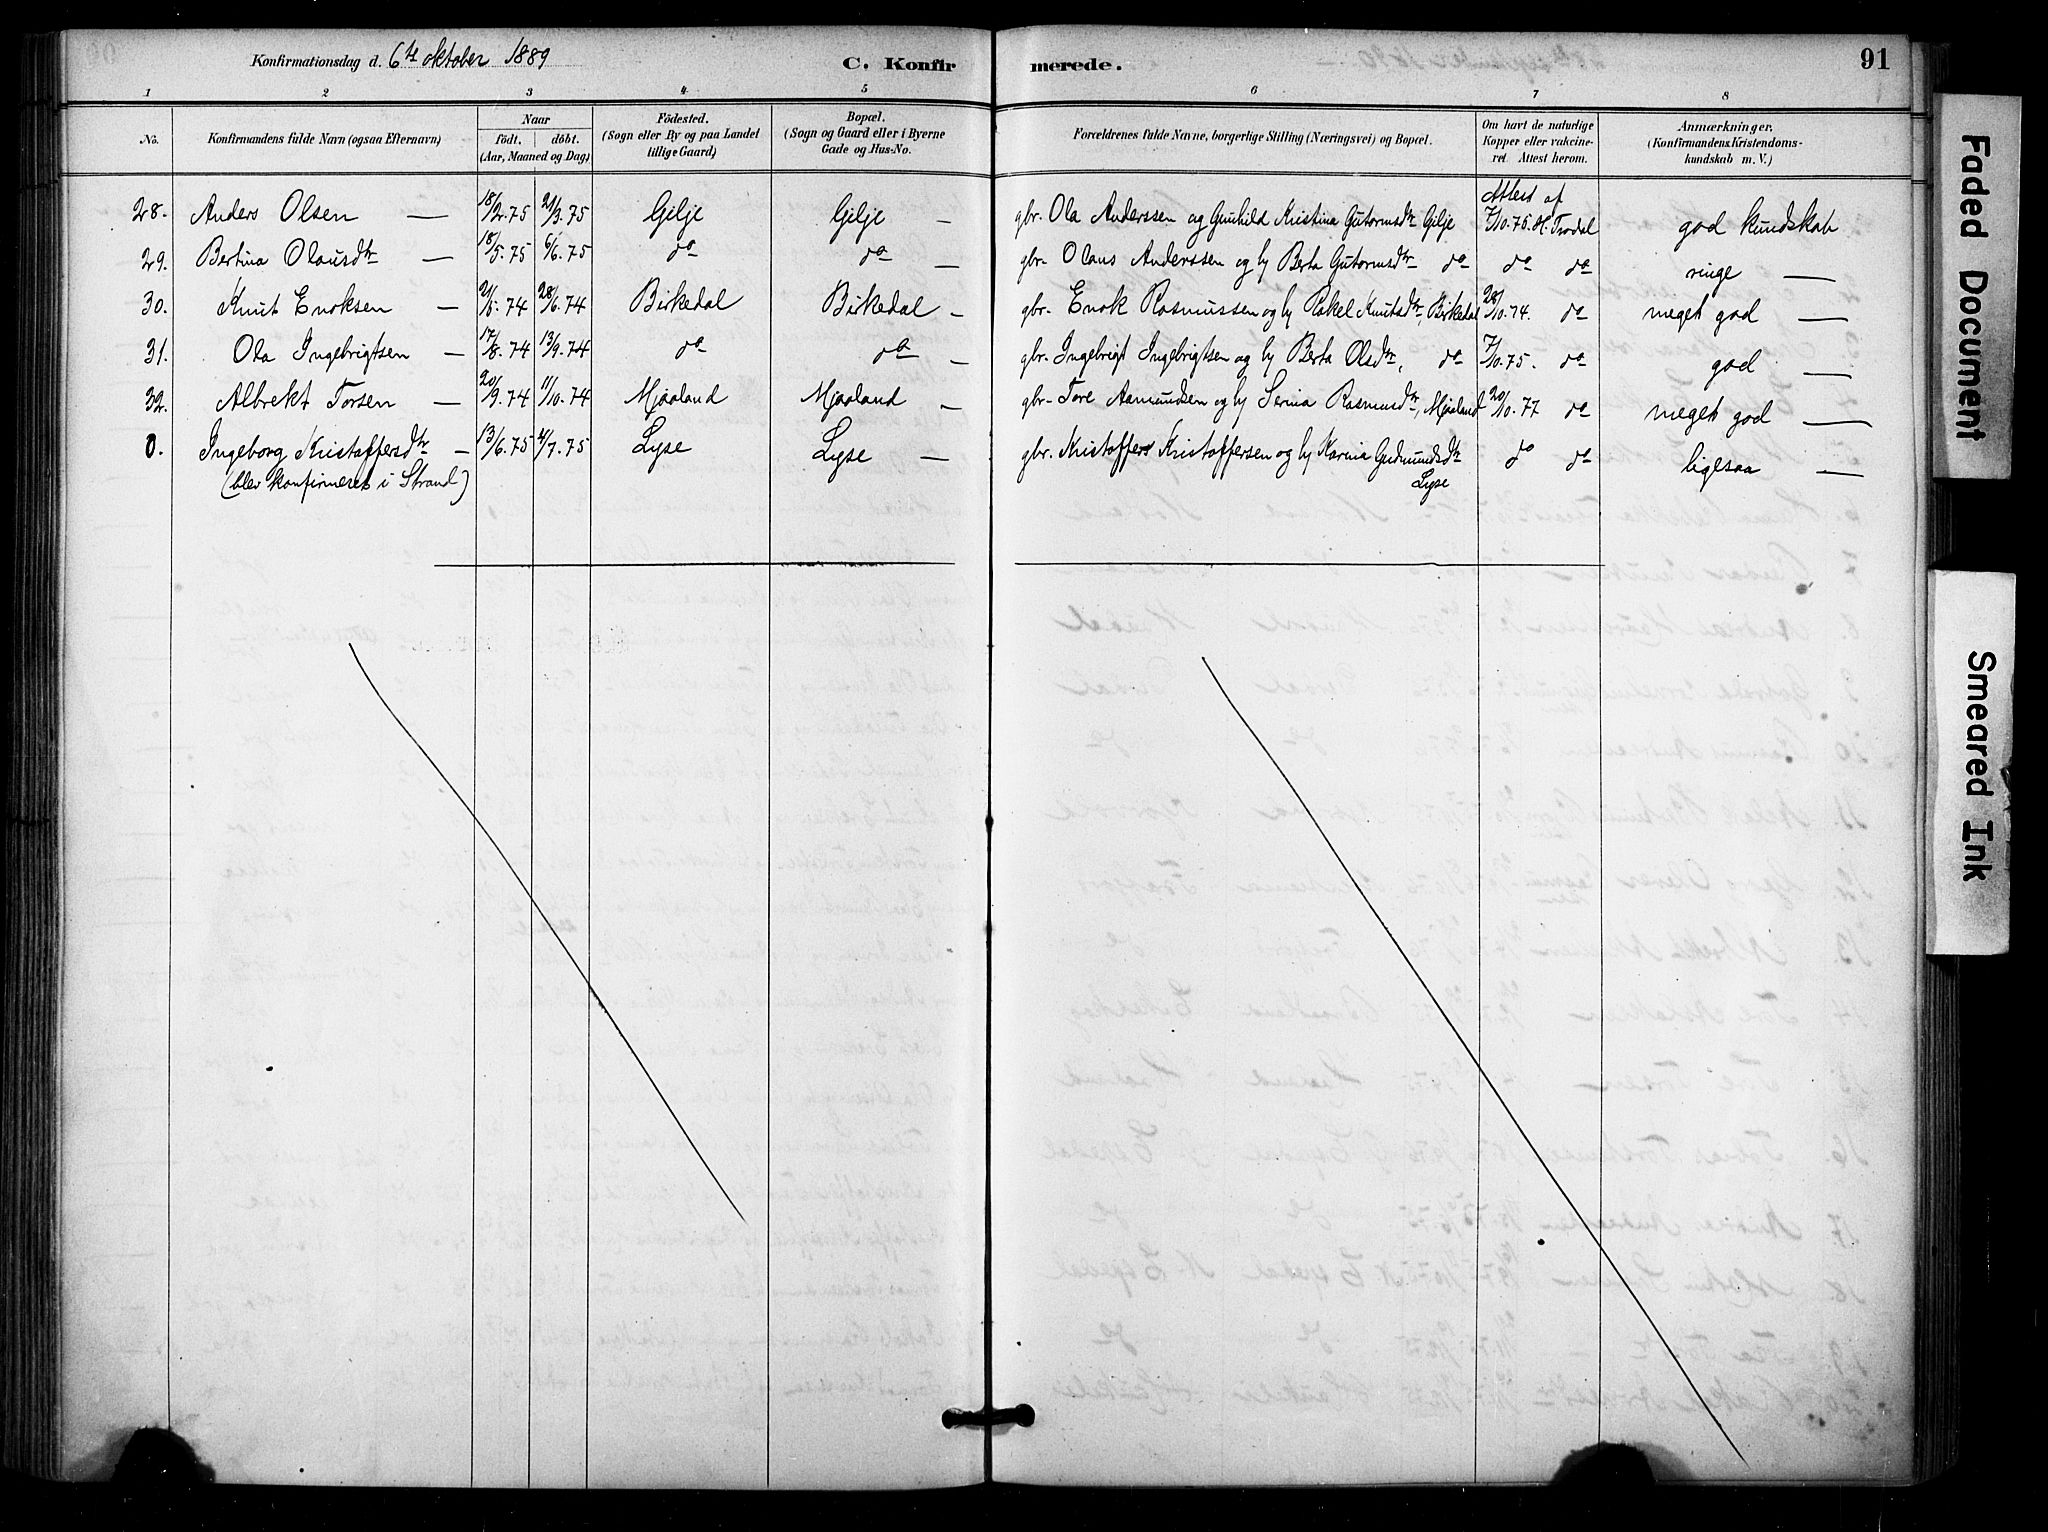 Konfirmationsdag d. 6te oktober 1889 C. Konfirmerede. 91
1 2 3 4 5 6 7 8
No.
Konfirmandens fulde Navn (ogsaa Efternavn)
Naar
født. døbt.
(Aar, Maaned og Dag)
Fødested.
(Sogn eller By og paa Landet
tillige Gaard)
Bopæl.
(Sogn og Gaard eller i Byerne
Gade og Hus-No.
Forældrenes fulde Navne, borgerlige Stilling (Næringsvei) og Bopæl.
Om havt de naturlige
Kopper eller vakcine-
ret. Attest herom.
Anmærkninger.
(Konfirmandens Kristendoms-
kundskab m. V.)
28. Anders Olsen — 18/2.75 21/3.75 Gilje Gilje — gbr. Ola Anderssen og Gunhild Kristina Gutormsdtr Gilje Attest af 7/10.75. H. Trodal god kundskab
29. Bertina Olausdtr — 18/5.75 6/6.75 do do — gbr. Olaus Anderssen og hu Berta Gutormsdtr do do do ringe —
30. Knut Enoksen — 21/5.74 28/6.74 Birkedal Birkedal — gbr. Enok Rasmussen og hu Rakel Knutsdtr, Birkedal 28/10.74. do meget god —
31. Ola Ingebrigtsen — 17/8.74 13/9.74 do do — gbr. Ingebrigt Ingebrigtsen og hu Berta Olsdtr, do 7/10.75. do god —
32. Albrekt Torsen — 20/9.74 11/10.74 Mjaaland Mjaaland — gbr. Tore Aamundsen og hu Serina Rasmusdtr, Mjaaland 20/10.77 do meget god —
0. Ingeborg Kristoffersdtr — 13/6.75 4/7.75 Lyse Lyse — gbr. Kristoffer Kristoffersen og hu Karina Gudmundsdtr do do ligesaa —
(blev konfirmeret i Strand) Lyse
Faded Document
Smeared Ink